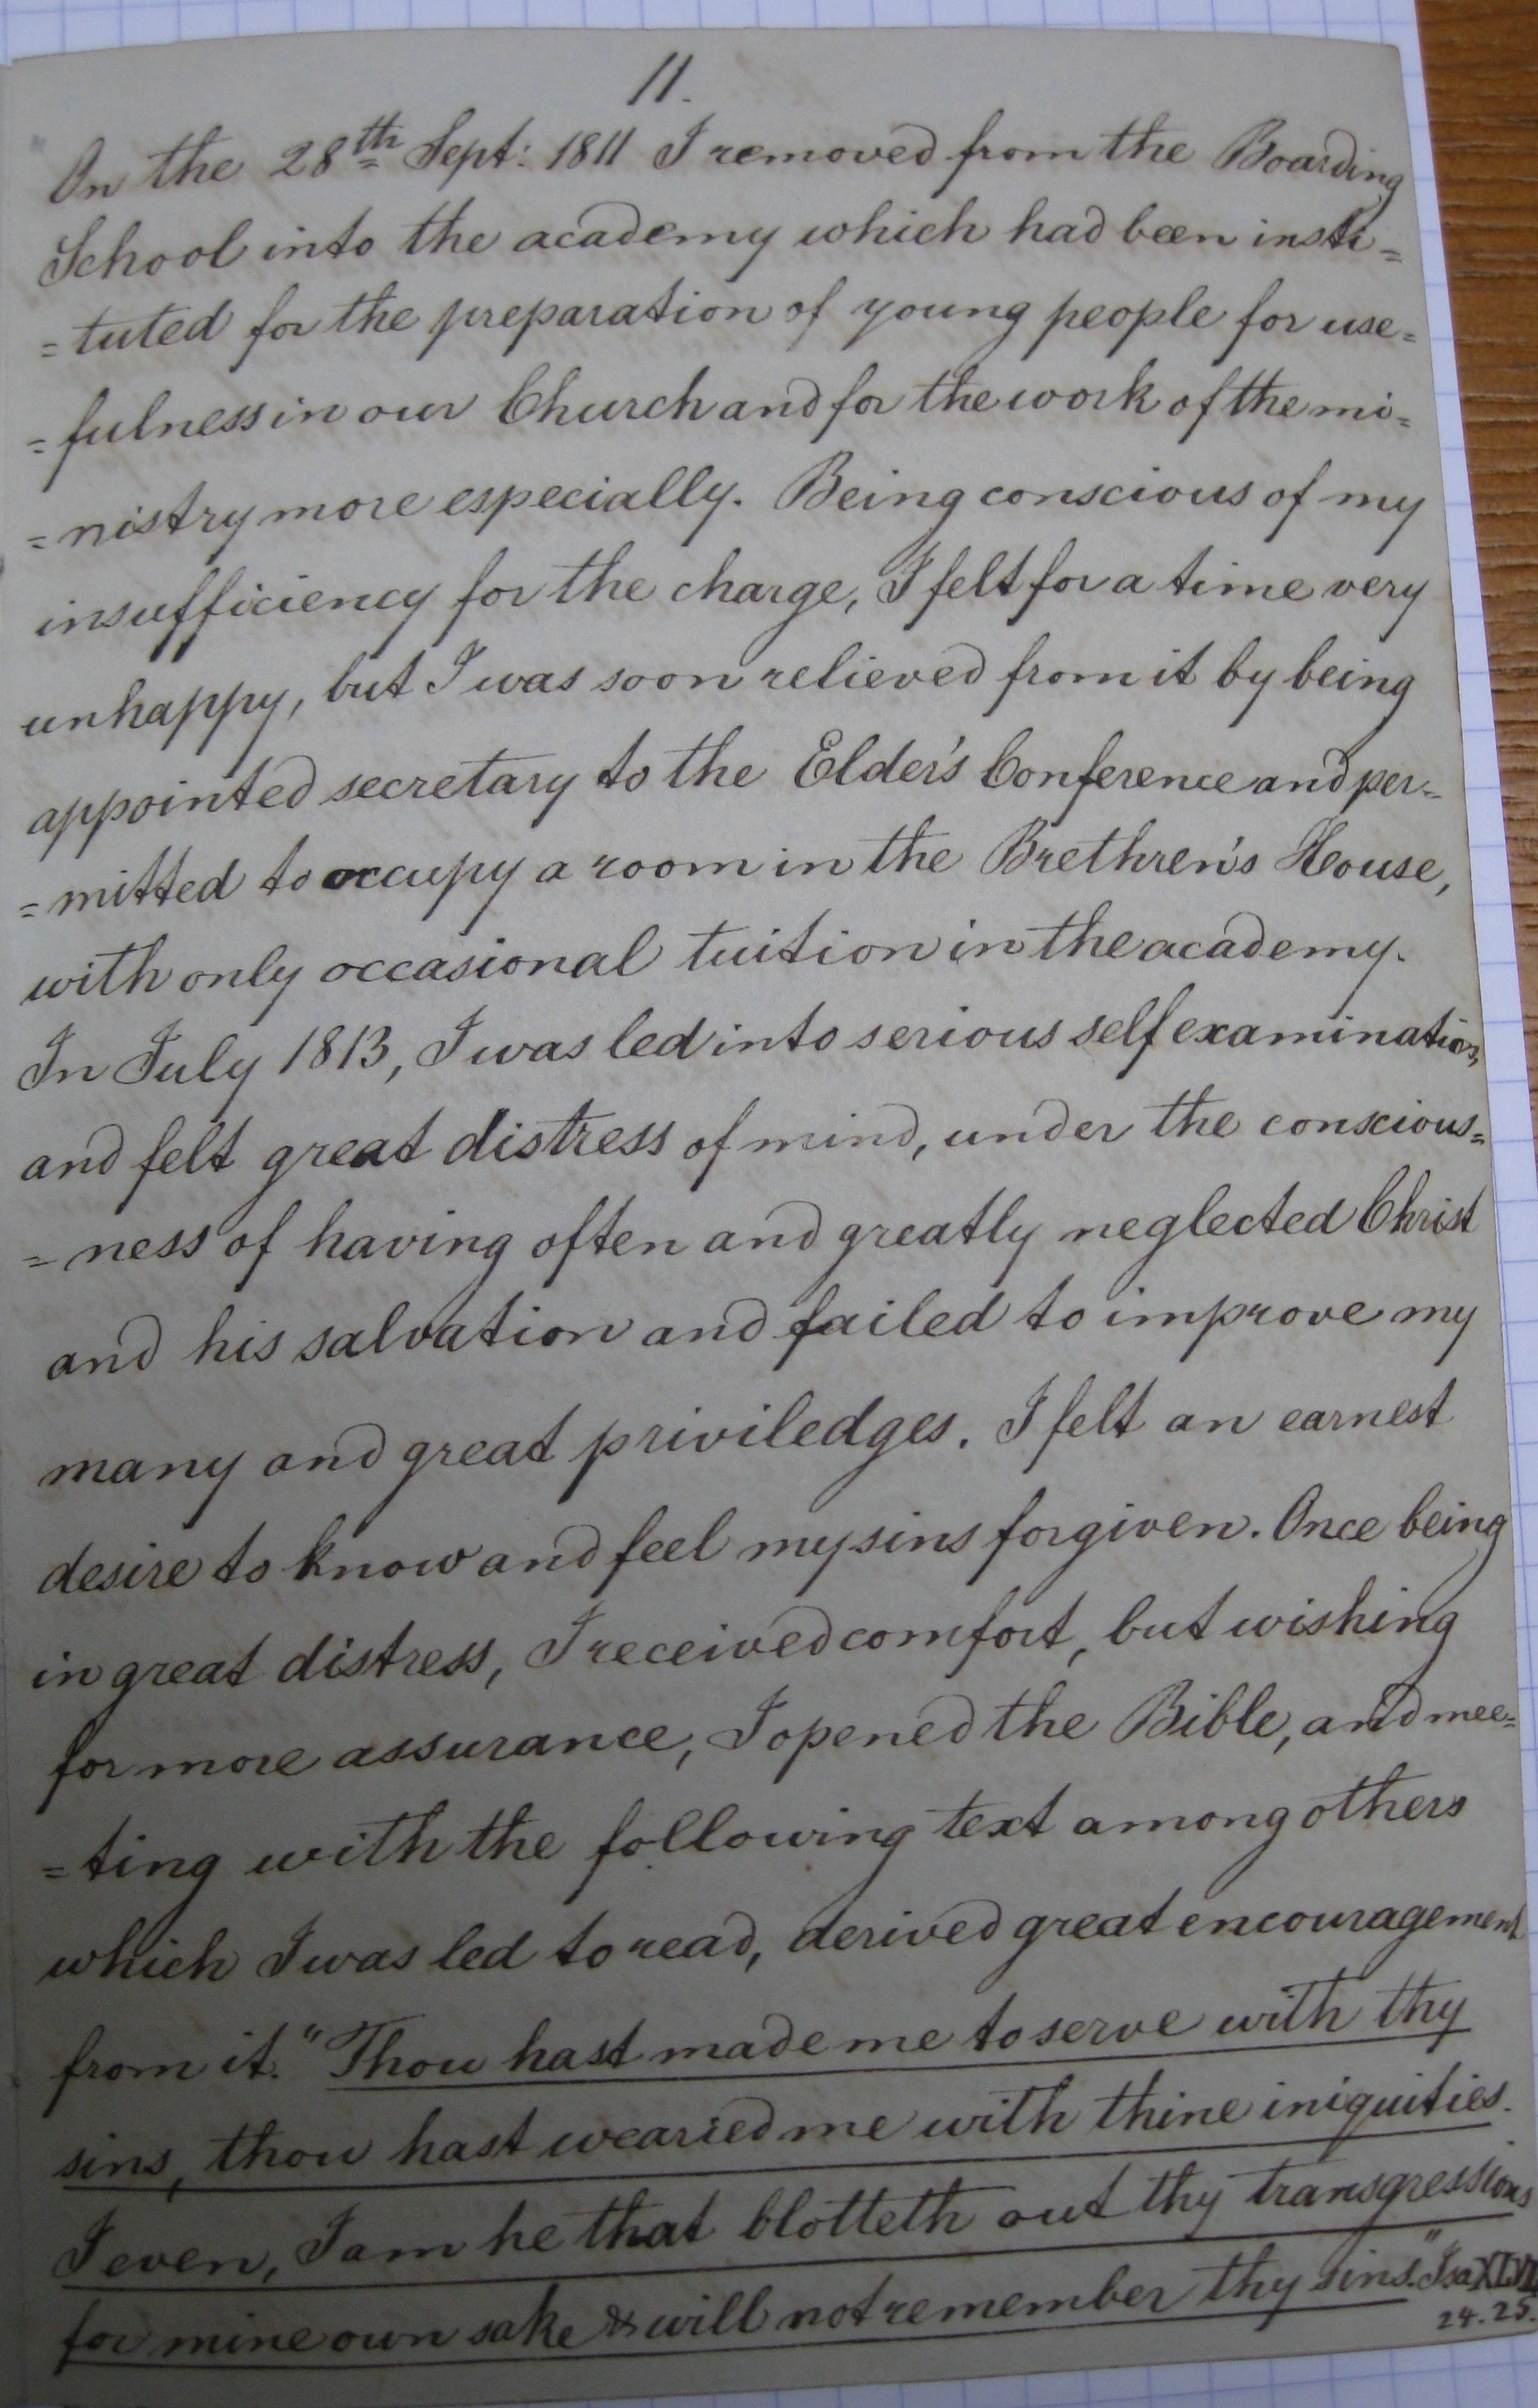 11.
On the 28th Sept: 1811 I removed from the Boarding
School into the academy which had been insti=
=tuted for the preparation of young people for use=
=fulness in our Church and for the work of the mi=
=nistry more especially. Being conscious of my
insufficiency for the charge, I felt for a time very
unhappy, but I was soon relieved from it by being
appointed secretary to the Elder's Conference and per=
=mitted to occupy a room in the Brethren's House,
with only occasional tuition in the academy.
In July 1813, I was led into serious self examination,
and felt great distress of mind, under the conscious=
=ness of having often and greatly neglected Christ
and his salvation and failed to improve my
many and great priviledges. I felt an earnest
desire to know and feel my sins forgiven. Once being
in great distress, I received comfort, but wishing
for more assurance, I opened the Bible, and mee=
=ting with the following text among others
which I was led to read, derived great encouragement
from it. "Thou hast made me to serve with thy
sins, thou hast wearied me with thine iniquities.
I even, I am he that blotteth out thy transgressions
for mine own sake & will not remember thy sins." Isa
24.25.